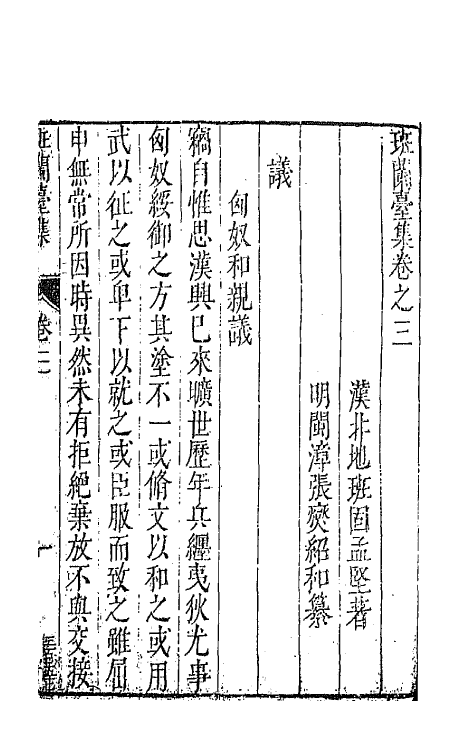 班蘭臺集卷之三
漢北地班固孟堅著
明閩漳張燮紹和纂
議
匈奴和親議
竊自惟思漢興已來曠世歷年兵纒夷狄尤事
匈奴綏御之方其塗不一或脩文以和之或用
武以征之或卑下以就之或臣服而致之雖屈
申無常所因時異然未有拒絶棄放不與交接
班蘭臺集
卷三
一